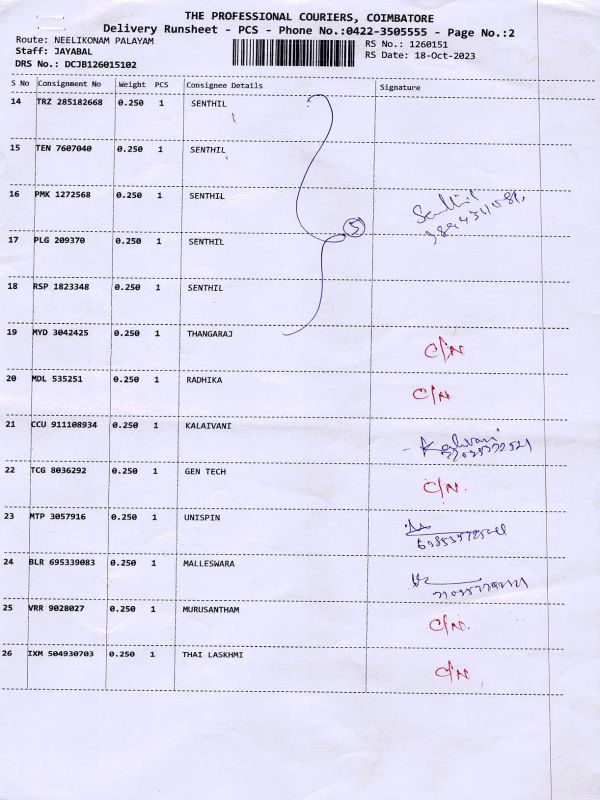 THE PROFESSIONAL COURIERS, COIMBATORE
Delivery Runsheet - PCS - Phone No.:0422-3505555 - Page No.:2
Route: NEELIKONAM PALAYAM
RS No.: 1260151
Staff: JAYABAL
RS Date: 18-Oct-2023
DRS No.: DCJB126015102
S No Consignment No Weight PCS Consignee Details Signature
14 TRZ 285182668 0.250 1 SENTHIL
15 TEN 7607040 0.250 1 SENTHIL
16 PMK 1272568 0.250 1 SENTHIL Senthil
5
17 PLG 209370 0.250 1 SENTHIL
18 RSP 1823348 0.250 1 SENTHIL
19 MYD 3042425 0.250 1 THANGARAJ C/N
20 MDL 535251 0.250 1 RADHIKA C/N
21 CCU 911108934 0.250 1 KALAIVANI
22 TCG 8036292 0.250 1 GEN TECH C/N.
23 MTP 3057916 0.250 1 UNISPIN
24 BLR 695339083 0.250 1 MALLESWARA
25 VRR 9028027 0.250 1 MURUSANTHAM C/N.
26 IXM 504930703 0.250 1 THAI LASKHMI C/N